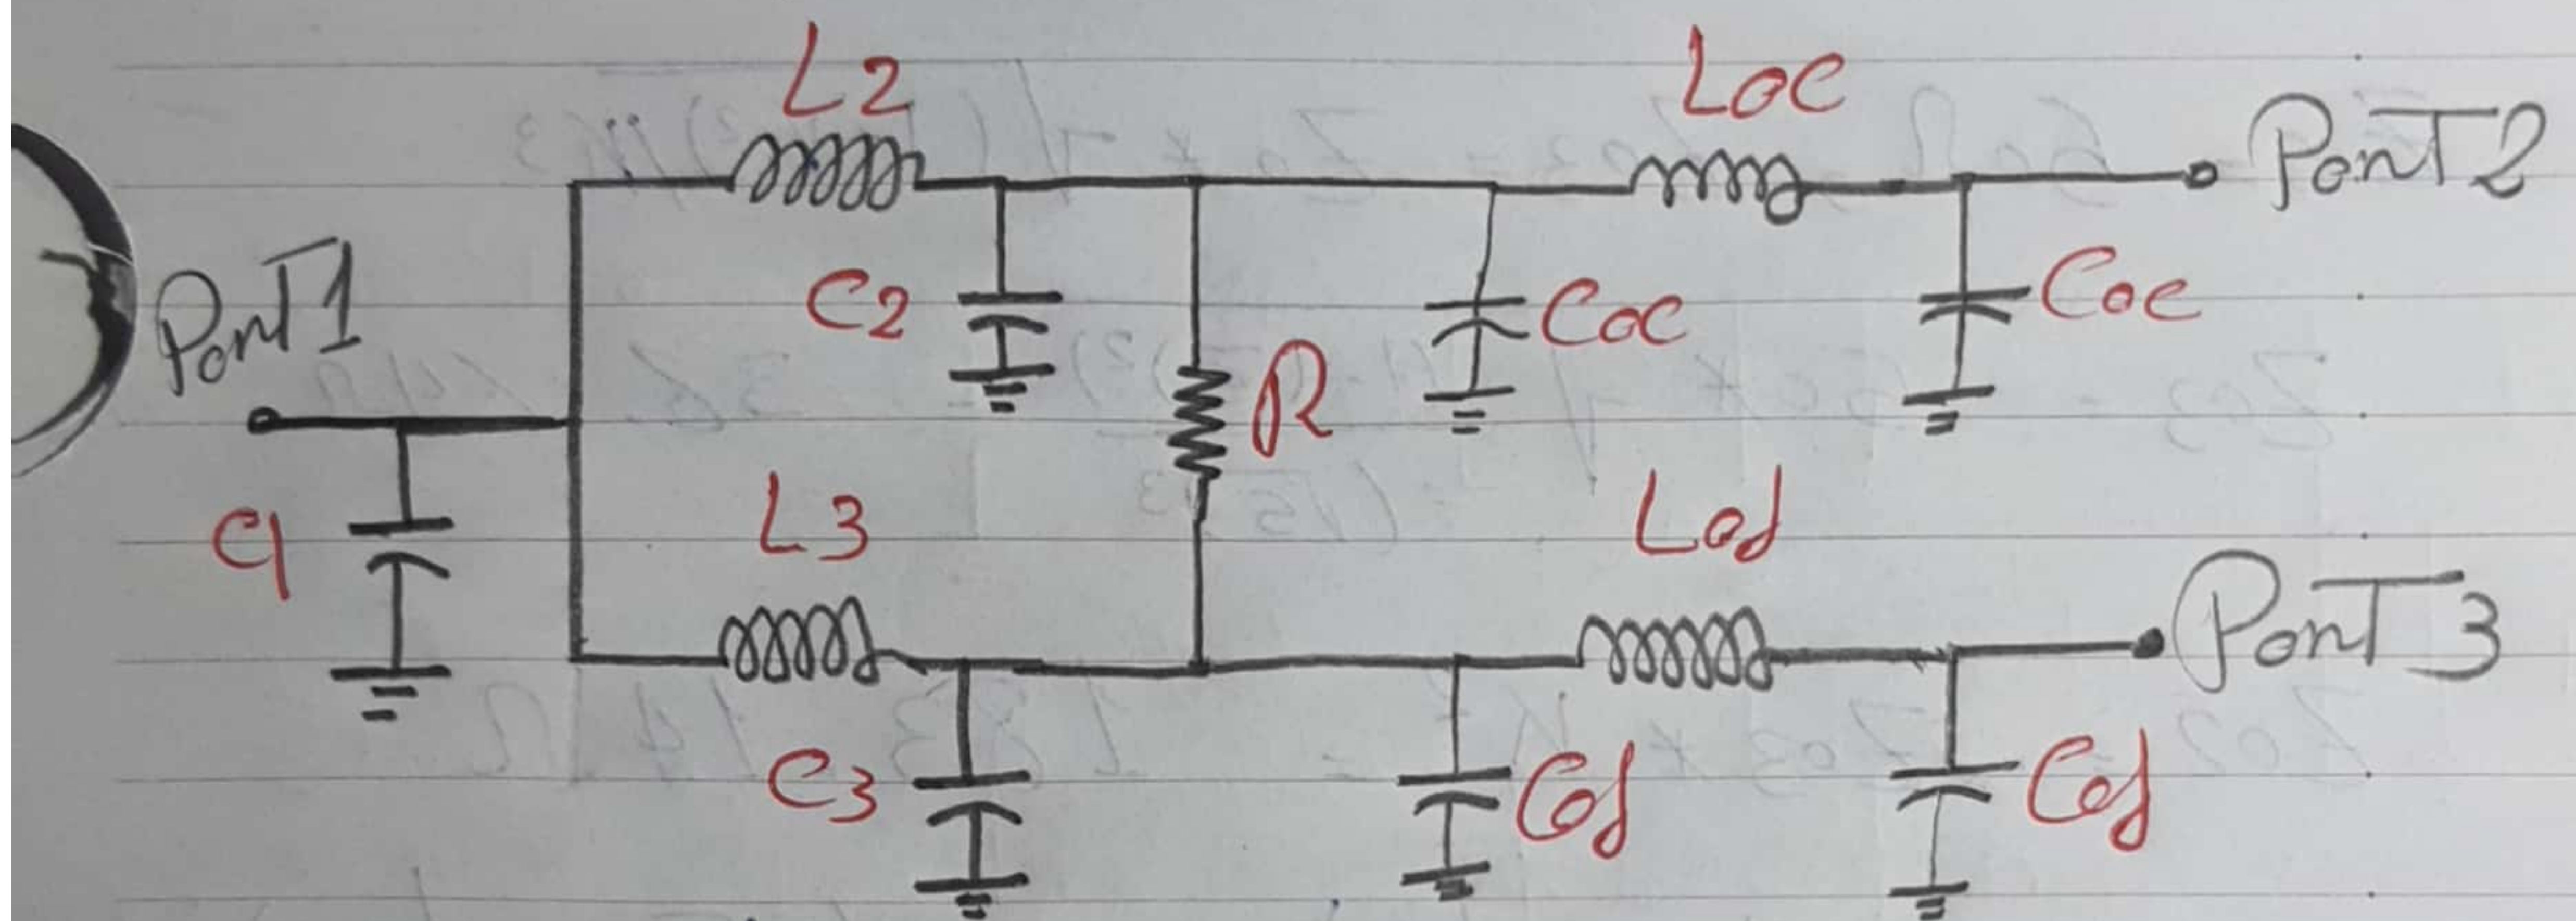 L2
Loc
Port 2
Port 1
C2
R
Coc
Coc
C1
L3
Lod
Port 3
C3
Cod
Cod